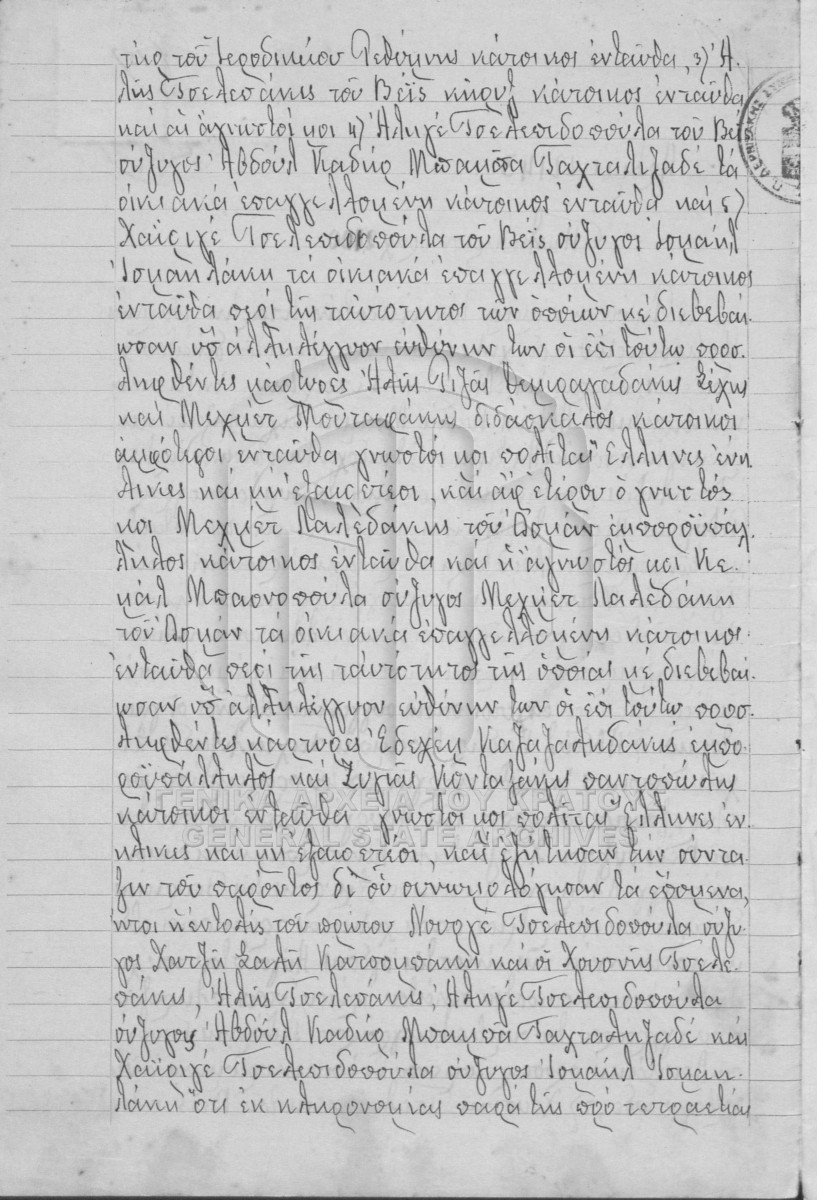 τήρ τοῦ Ἱεροδικείου Ρεθύμνης κάτοικος ἐνταῦθα, 3) Ἀ-
λῆς Τσελεπάκις τοῦ Βέϊς κῆρυξ κάτοικος ἐνταῦθα
καὶ αἱ ἄγνωστοί μοι 4) Ἀλιγὲ Τσελεπιδοπούλα τοῦ Βέϊ
σύζυγος Ἀβδοὺλ Καδὴρ Μπακιπᾶ Ταχταλιζαδὲ τὰ
οἰκιακὰ ἐπαγγελλομένη κάτοικος ἐνταῦθα καὶ 5)
Χαϊριγὲ Τσελεπιδοπούλα τοῦ Βέϊς σύζυγος Ἰσμαὴλ
Ἰσμαηλάκη τὰ οἰκιακὰ ἐπαγγελλομένη κάτοικος
ἐνταῦθα περὶ τῆς ταυτότητος τῶν ὁποίων μὲ διεβεβαί-
ωσαν ὑπ' ἀλληλέγγυον εὐθύνην των οἱ ἐπὶ τούτῳ προσ-
ληφθέντες μάρτυρες Ἀλῆς Ριζᾶς
καὶ Μεχμὲτ Μουταφάκης διδάσκαλος κάτοικοι
ἀμφότεροι ἐνταῦθα γνωστοί μοι πολῖται Ἕλληνες ἐνή-
λικες καὶ μὴ ἐξαιρετέοι, καὶ ἀφ' ἑτέρου ὁ γνωστός
μοι Μεχμὲτ Λαλεδάκης τοῦ Ὀσμὰν ἐμποροϋπάλ-
ληλος κάτοικος ἐνταῦθα καὶ ἡ ἄγνωστός μοι Κε-
μὰλ Μπασνοπούλα σύζυγος Μεχμὲτ Λαλεδάκη
τοῦ Ὀσμὰν τὰ οἰκιακὰ ἐπαγγελλομένη κάτοικος
ἐνταῦθα περὶ τῆς ταυτότητος τῆς ὁποίας μὲ διεβεβαί-
ωσαν ὑπ' ἀλληλέγγυον εὐθύνην των οἱ ἐπὶ τούτῳ προσ-
ληφθέντες μάρτυρες Ἐδεχὲμ Καζαζαλιδάκις ἐμπο-
ροϋπάλληλος καὶ Κονταξάκης παντοπώλης
κάτοικοι ἐνταῦθα γνωστοί μοι πολῖται Ἕλληνες ἐν-
ήλικες καὶ μὴ ἐξαιρετέοι, καὶ ἐζήτησαν τὴν σύντα-
ξιν τοῦ παρόντος δι' οὗ συνωμολόγησαν τὰ ἑπόμενα,
ἤτοι ἡ ἐντολὶς τοῦ πρώτου Νουργὲ Τσελεπιδοπούλα σύζυ-
γος Χατζῆ Σαλῆ Κατσομπάκη καὶ οἱ Χουσνῆς Τσελε-
πάκις, Ἀλῆς Τσελεπάκις, Ἀλιγὲ Τσελεπιδοπούλα
σύζυγος Ἀβδοὺλ Καδὴρ Μπακιπᾶ Ταχταλιζαδὲ καὶ
Χαϊριγὲ Τσελεπιδοπούλα σύζυγος Ἰσμαὴλ Ἰσμαη-
λάκη ὅτι ἐκ κληρονομίας παρὰ τῆς πρὸ τετραετίας
ΓΕΝΙΚΑ ΑΡΧΕΙΑ ΤΟΥ ΚΡΑΤΟΥΣ
GENERAL STATE ARCHIVES